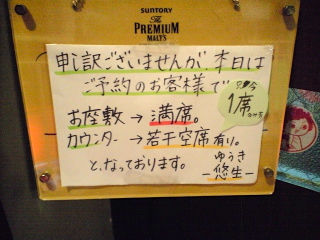 SUNTORY
The
PREMIUM
MALT'S
申し訳ございませんが、本日は
ご予約のお客様で
お座敷 → 満席。
カウンター → 若干空席有り。
1席
と、なっております。
ゆうき
－悠生－